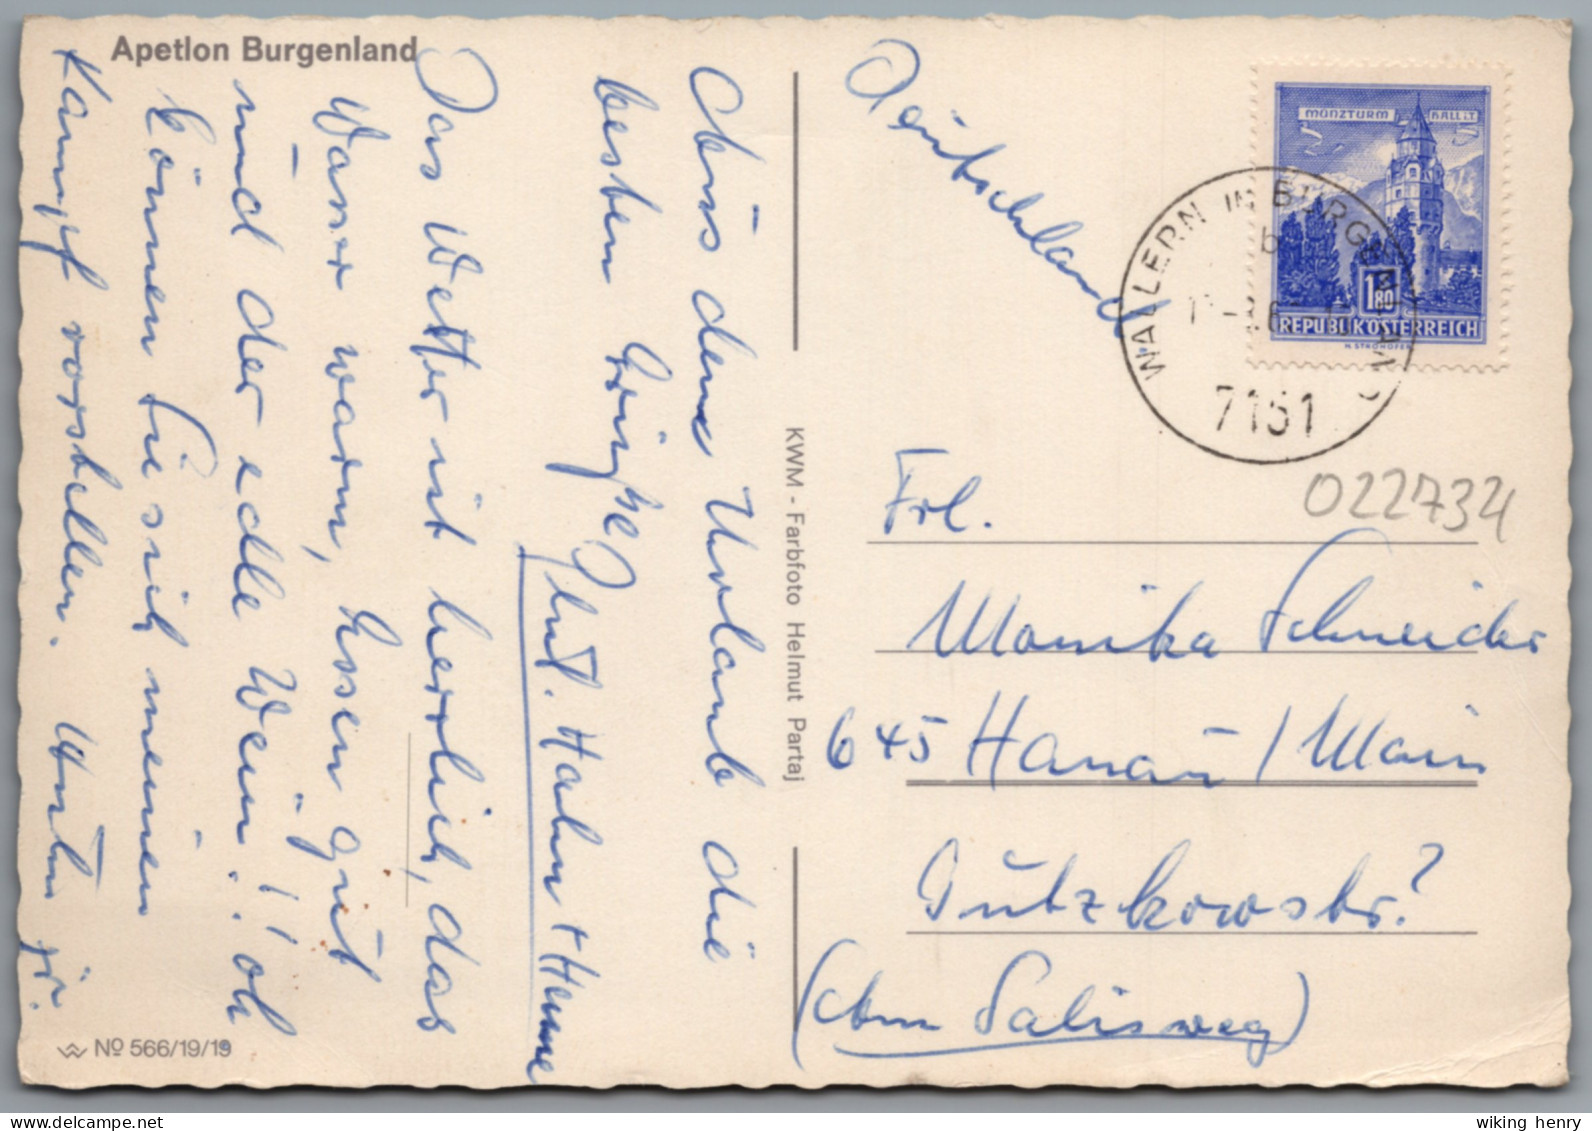 Apetlon Burgenland
Aus dem Urlaub die
besten Grüße
Ihnt. Hahn + Henne
Das Wetter ist herrlich, das
Wasser warm, Essen gut
und der edle Wein!! oh
können Sie sich meinen
Kampf vorstellen.
jr.
KWM - Farbfoto Helmut Partaj
№ 566/19/19
Deutschland
MÜNZTURM HALL i.T.
1.80
REPUBLIK ÖSTERREICH
H. STROHOFER
WALLERN IM BURGENLAND
b
7151
022734
Frl.
Monika Schneider
645 Hanau / Main
Gutzkowstr.?
(Am Salisweg)
wiking henry
www.delcampe.net